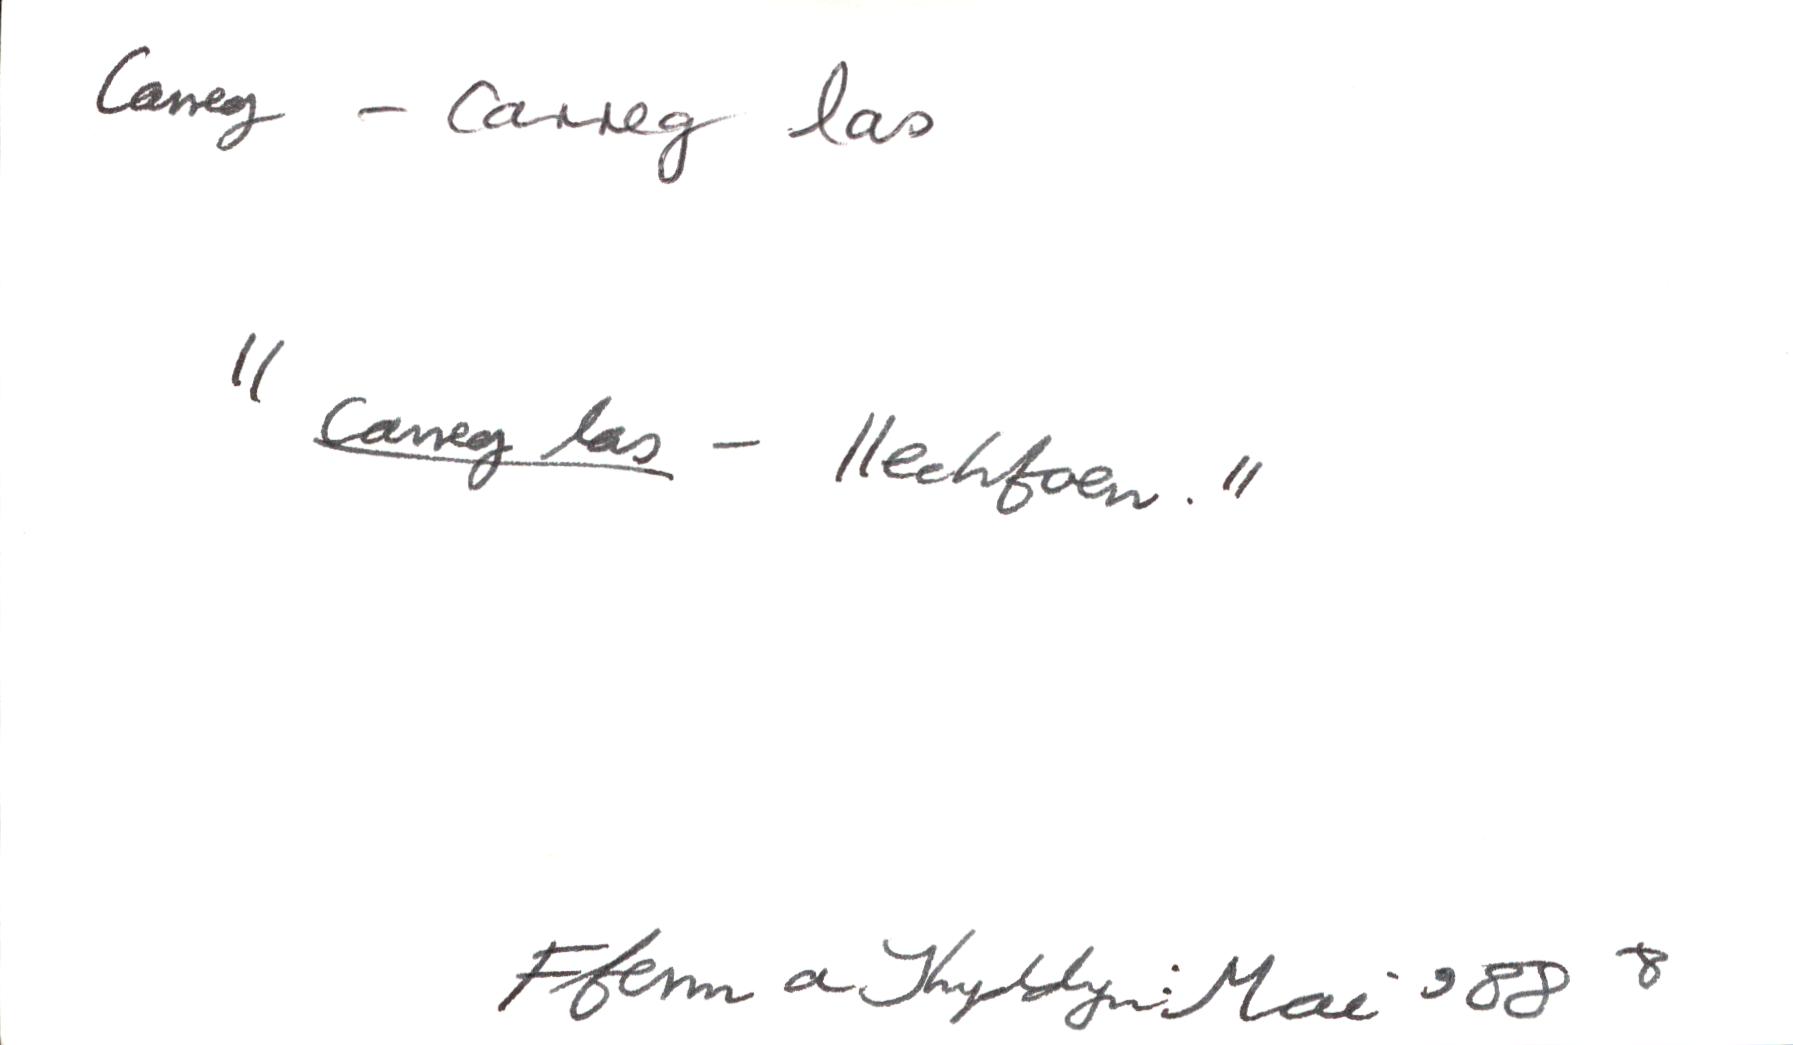 Carreg - Carreg las
"Carreg las - llechfaen."
Fferm a Thyddyn: Mai '88 8